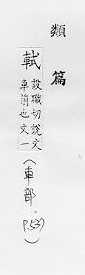 類篇
軾 設職切說文
車前也文一(車部 P.53)